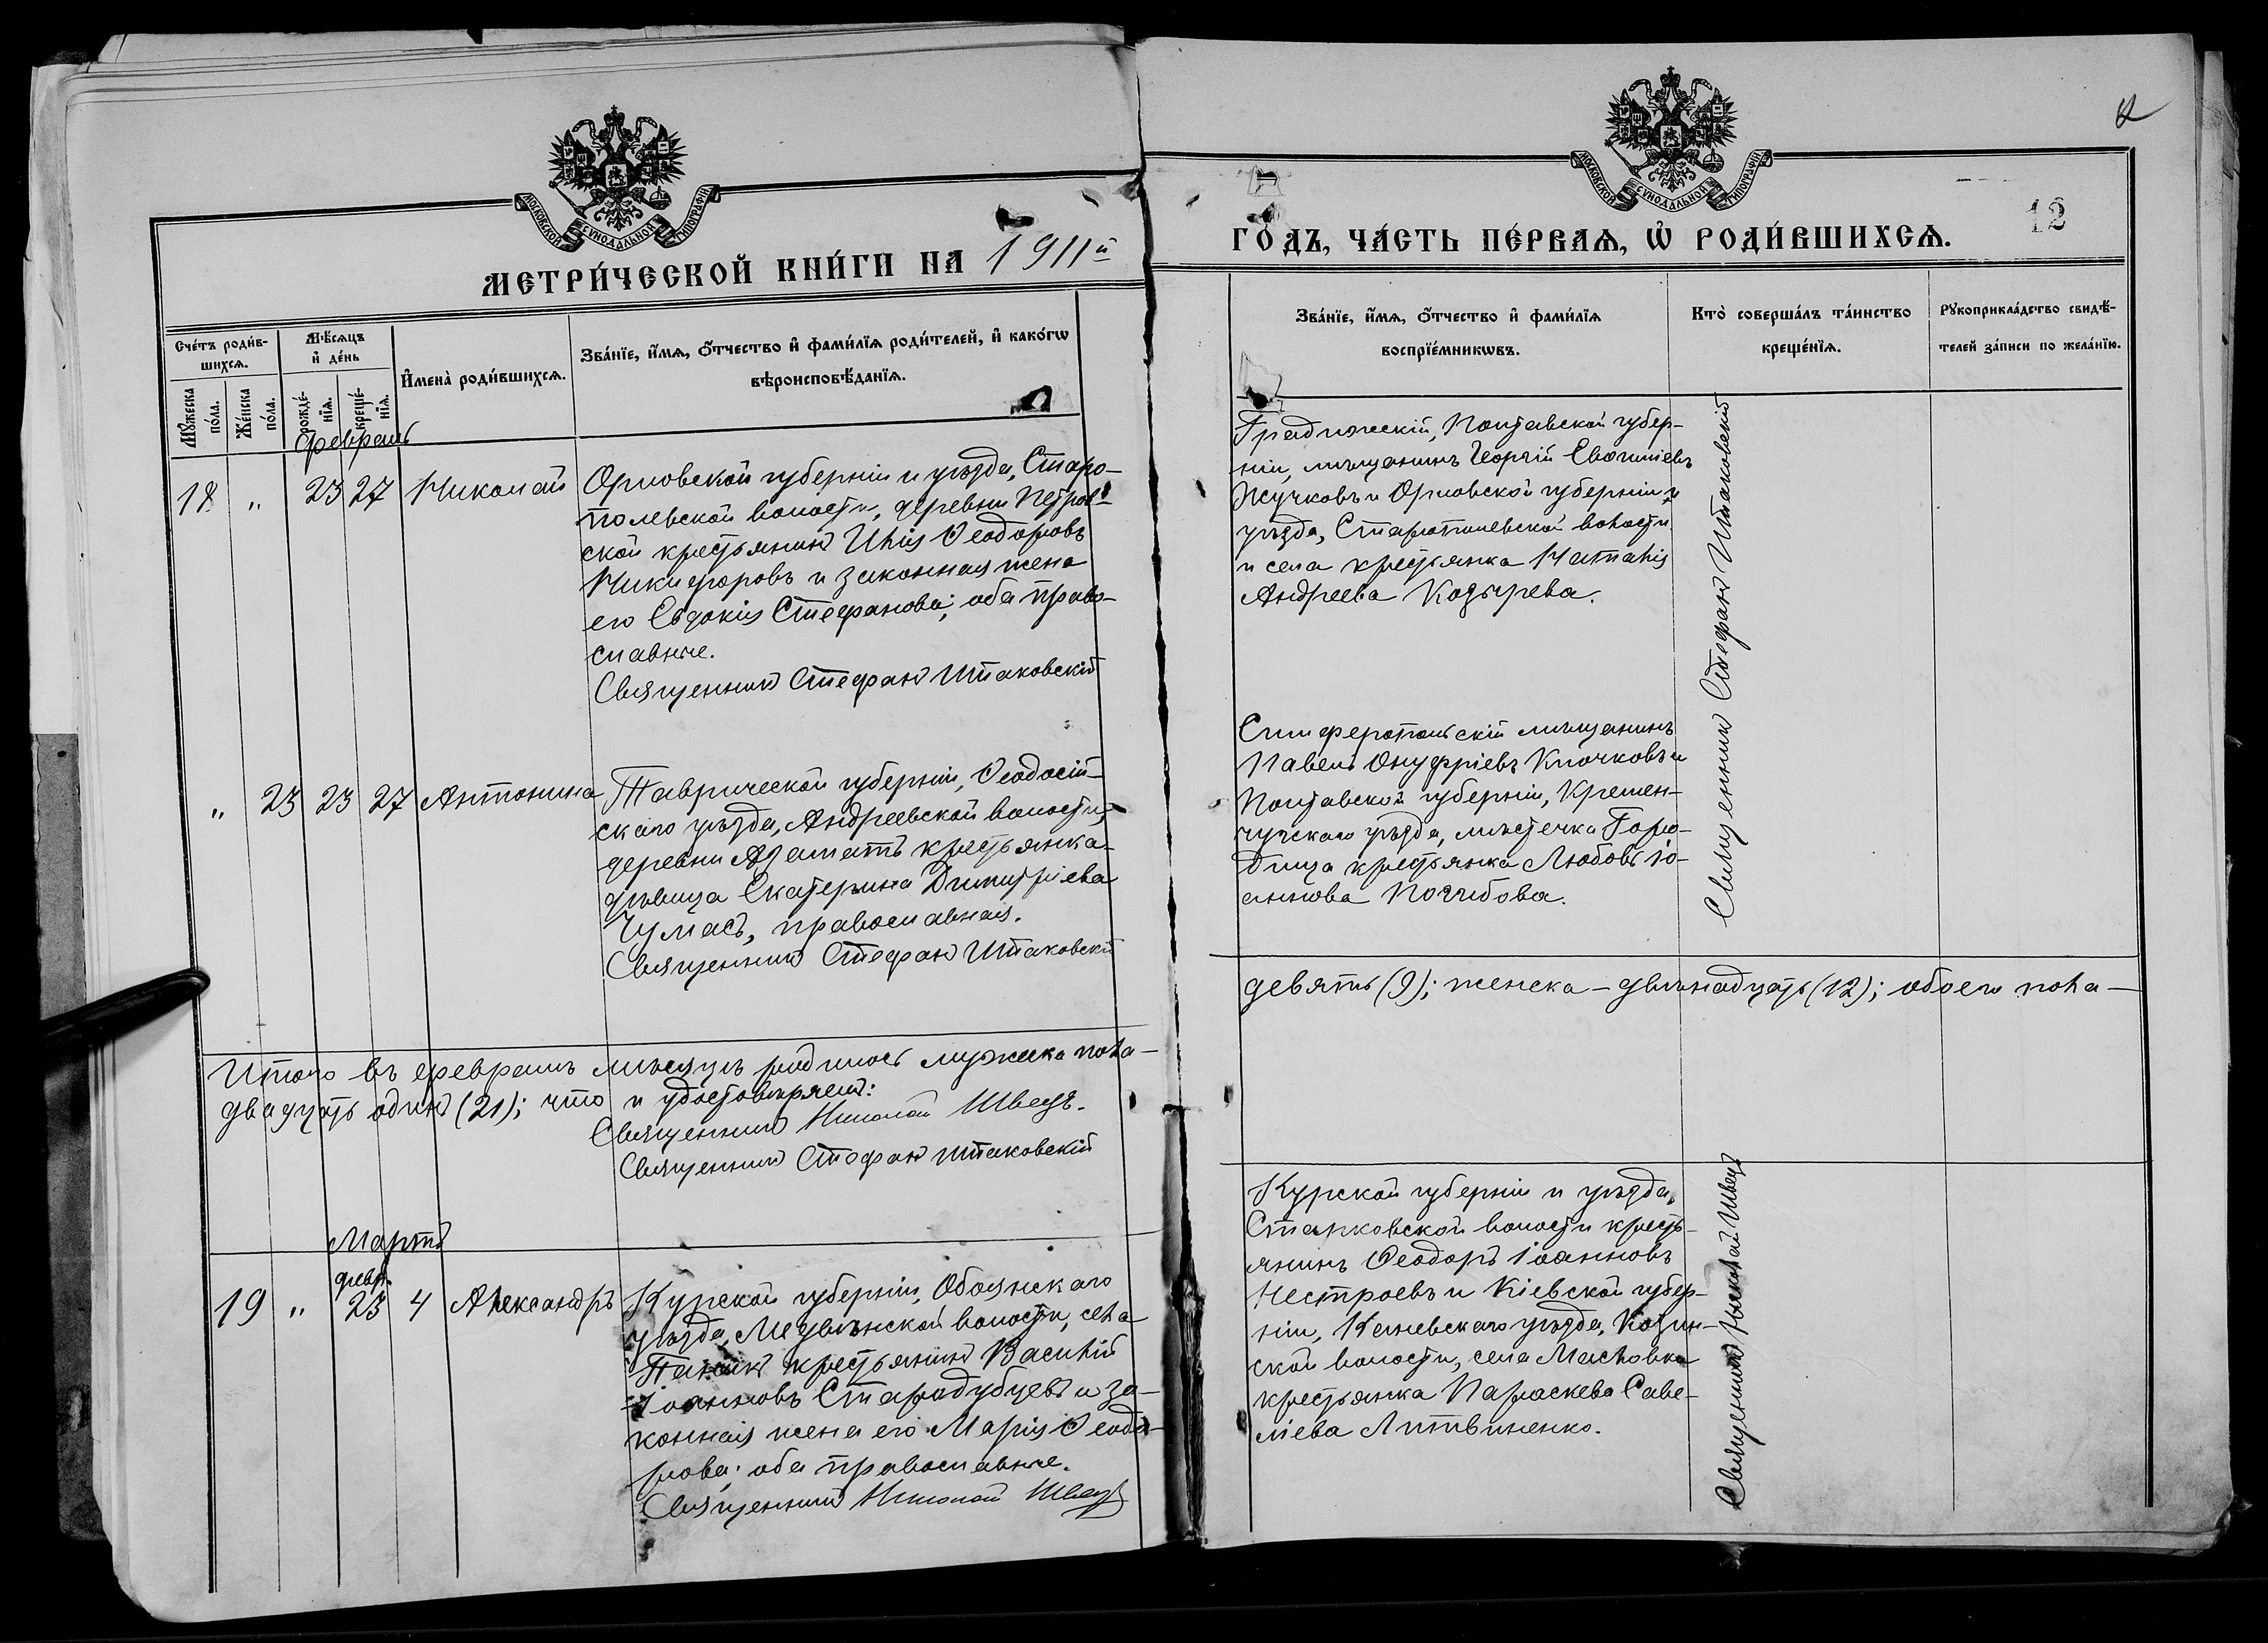 МОСКОВСКОЙ СУНОДАЛЬНОЙ ТИПОГРАФІИ
МЕТРИ́ЧЕСКОЙ КНИ́ГИ НА 1911й
Сче́тъ роди́в-
шихсѧ.
Мѣ́сѧцъ
и҆ де́нь
Мꙋ́жеска
по́ла.
Же́нска
по́ла.
рожде́-
нїѧ.
креще́-
нїѧ.
И҆мена̀ роди́вшихсѧ.
Зва́нїе, и҆́мѧ, ѻ҆́тчество и҆ фами́лїѧ роди́телей, и҆ како́гѡ
вѣроисповѣ́данїѧ.
Февраль
18 " 23 27 Николай
Орловской губерніи и уѣзда, Старо-
полевской волости, деревни Петров-
ской крестьянинъ Илія Ѳеодоровъ
Никифоровъ и законная жена
его Евдокія Стефанова; оба право-
славные.
Священникъ Стефанъ Штаковскій
" 23 23 27 Антонина
Таврической губерніи, Ѳеодосій-
скаго уѣзда, Андреевской волости,
деревни Азаматъ крестьянка-
дѣвица Екатерина Димитріева
Чумасъ, православная.
Священникъ Стефанъ Штаковскій
Итого въ февралѣ мѣсяцѣ родилось мужска пола-
двадцать одинъ (21); что и удостовѣряемъ:
Священникъ Николай Швецъ.
Священникъ Стефанъ Штаковскій
Мартъ
февр.
19 " 23 4 Александръ
Курской губерніи, Обоянскаго
уѣзда, Медвѣнской волости, села
крестьянинъ Василій
Іоанновъ Стародубцевъ и за-
конная жена его Марія Ѳеодо-
рова; оба православные.
Священникъ Николай Швецъ
МОСКОВСКОЙ СУНОДАЛЬНОЙ ТИПОГРАФІИ
12
ГО́ДЪ, ЧА́СТЬ ПЕ́РВАѦ, Ѡ҆ РОДИ́ВШИХСѦ.
Зва́нїе, и҆́мѧ, ѻ҆́тчество и҆ фами́лїѧ
воспрїе́мникѡвъ.
Кто̀ соверша́лъ та́инство
креще́нїѧ.
Рꙋкоприкла́дство свидѣ́-
телей за́писи по жела́нїю.
Градижскій, Полтавской губер-
ніи, мѣщанинъ Георгій Евфиміевъ
Жучковъ и Орловской губерніи и
уѣзда, Старополевской волости
и села крестьянка Наталія
Андреева Козырева.
Священникъ Стефанъ Штаковскій
Симферопольскій мѣщанинъ
Павелъ Онуфріевъ Клочковъ и
Полтавской губерніи, Кремен-
чугскаго уѣзда, мѣстечка Горо-
дища крестьянка Любовь Іо-
аннова Погибова.
девять (9); женска - двѣнадцать (12); обоего пола -
Курской губерніи и уѣзда,
Стаковской волости кресть-
янинъ Ѳеодоръ Іоанновъ
Нестроевъ и Кіевской губер-
ніи, Каневскаго уѣзда, Козин-
ской волости, села Масловка
крестьянка Параскева Саве-
ліева Литвиненко.
Священникъ Николай Швецъ